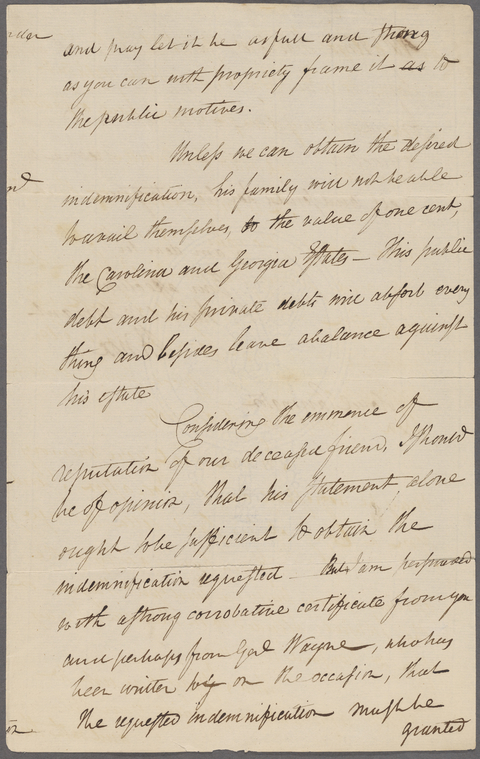 and pray let it be as full and strong
as you can with propriety frame it as to
the public motives.
Unless we can obtain the desired
indemnification, his family will not be able
to avail themselves, to the value of one cent,
the Carolina and Georgia Estates — This public
debt and his private debts will absorb every
thing and besides leave a balance against
his estate
Considering the eminence of
reputation of our deceased friend, I should
be of opinion, that his statement, alone
ought to be sufficient to obtain the
indemnification requested — But I am persuaded
with a strong corrobative certificate from you
and perhaps from Genl Wayne, who has
been written to on the occasion, that
the requested indemnification must be
granted